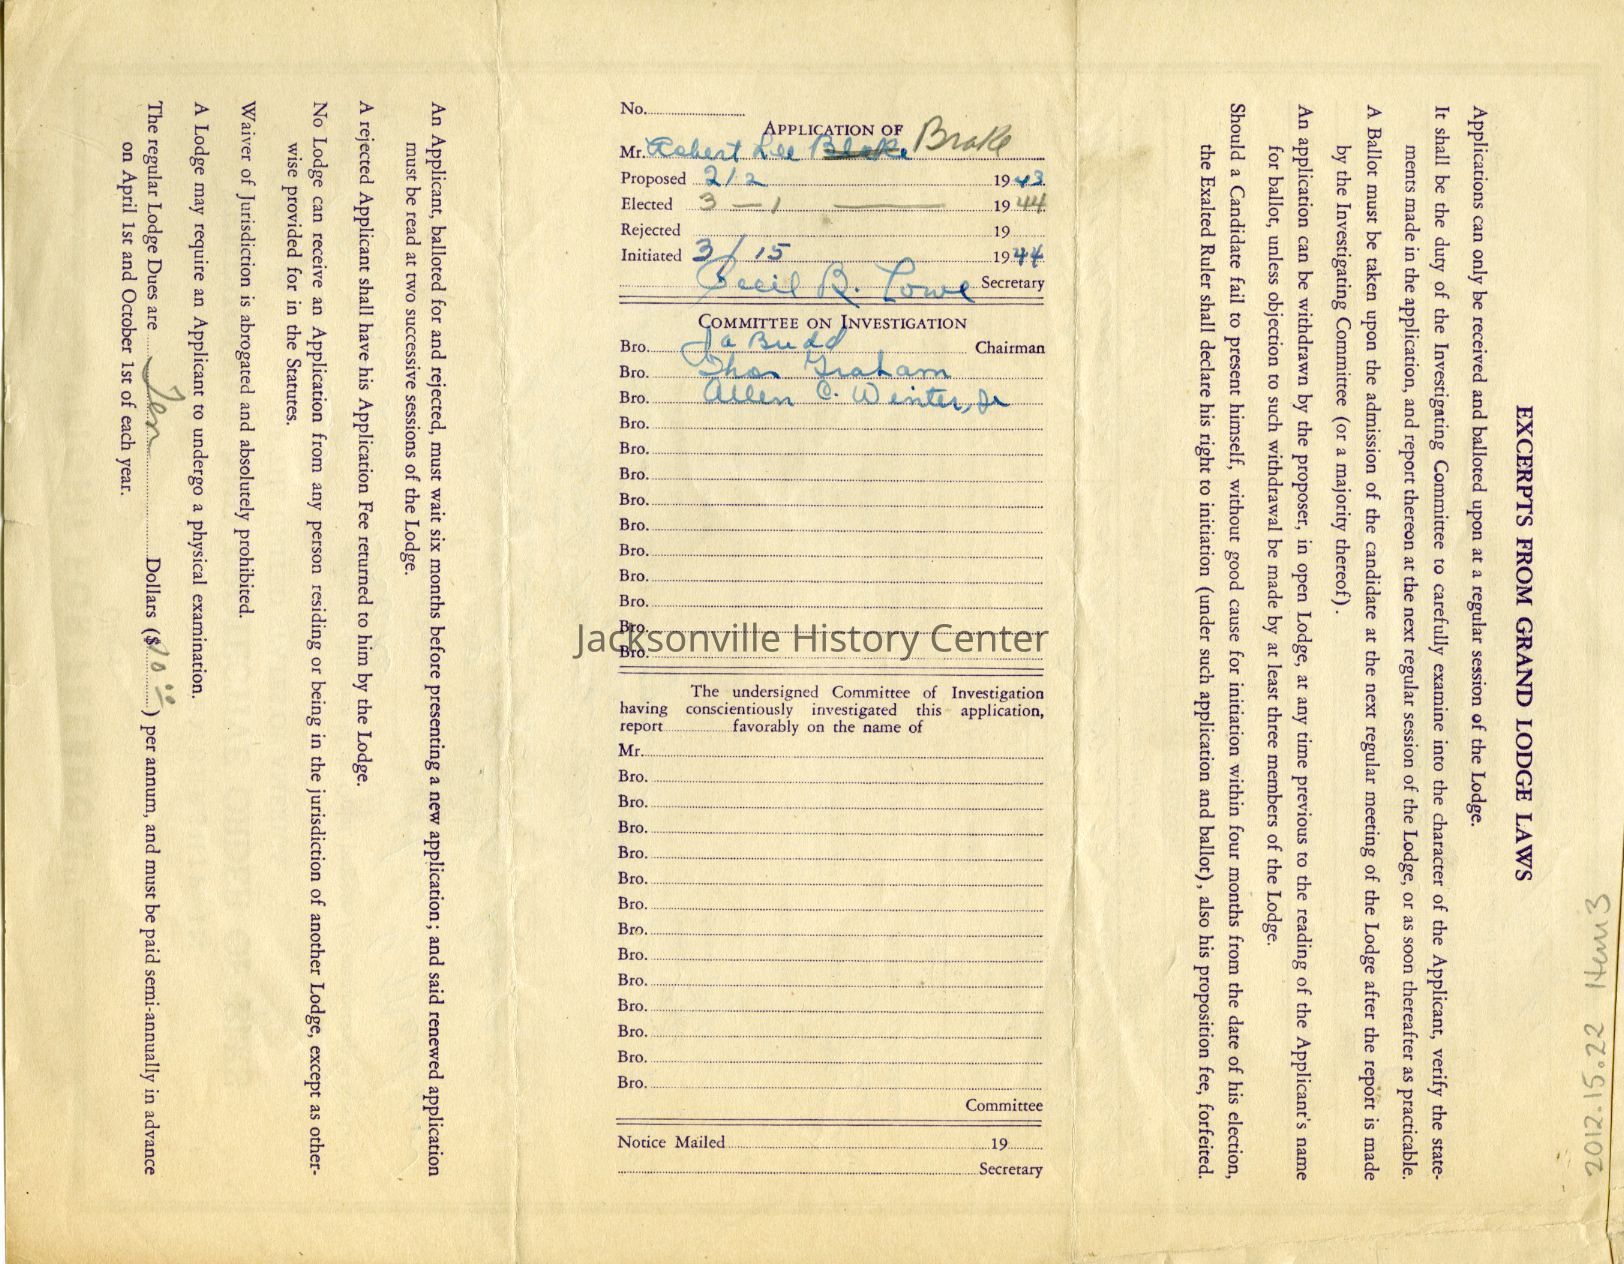 No.
APPLICATION OF
Mr. Robert Lee Blake Brake
Proposed 2/2 1943
Elected 3 — 1 1944
Rejected 19
Initiated 3/15 1944
Cecil R. Lowe Secretary
COMMITTEE ON INVESTIGATION
Bro. Ja Budd Chairman
Bro. Thos Graham
Bro. Allen C. Winter, Jr
Bro.
Bro.
Bro.
Bro.
Bro.
Bro.
Bro.
Bro.
Bro.
Bro.
Jacksonville History Center
The undersigned Committee of Investigation
having conscientiously investigated this application,
report favorably on the name of
Mr.
Bro.
Bro.
Bro.
Bro.
Bro.
Bro.
Bro.
Bro.
Bro.
Bro.
Bro.
Bro.
Bro.
Committee
Notice Mailed 19
Secretary
EXCERPTS FROM GRAND LODGE LAWS
Applications can only be received and balloted upon at a regular session of the Lodge.
It shall be the duty of the Investigating Committee to carefully examine into the character of the Applicant, verify the state-
ments made in the application, and report thereon at the next regular session of the Lodge, or as soon thereafter as practicable.
A Ballot must be taken upon the admission of the candidate at the next regular meeting of the Lodge after the report is made
by the Investigating Committee (or a majority thereof).
An application can be withdrawn by the proposer, in open Lodge, at any time previous to the reading of the Applicant's name
for ballot, unless objection to such withdrawal be made by at least three members of the Lodge.
Should a Candidate fail to present himself, without good cause for initiation within four months from the date of his election,
the Exalted Ruler shall declare his right to initiation (under such application and ballot), also his proposition fee, forfeited.
An Applicant, balloted for and rejected, must wait six months before presenting a new application; and said renewed application
must be read at two successive sessions of the Lodge.
A rejected Applicant shall have his Application Fee returned to him by the Lodge.
No Lodge can receive an Application from any person residing or being in the jurisdiction of another Lodge, except as other-
wise provided for in the Statutes.
Waiver of Jurisdiction is abrogated and absolutely prohibited.
A Lodge may require an Applicant to undergo a physical examination.
The regular Lodge Dues are Ten Dollars ($10.00) per annum, and must be paid semi-annually in advance
on April 1st and October 1st of each year.
2012.15.22